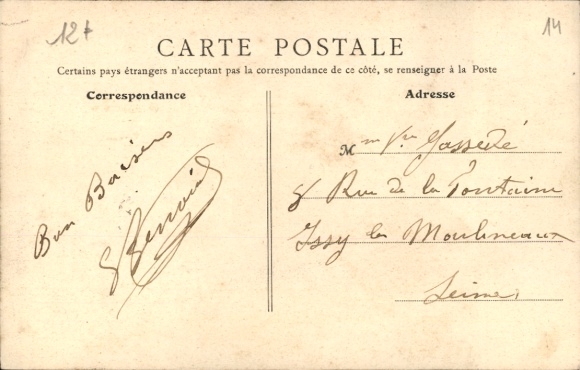 12f
14
CARTE POSTALE
Certains pays étrangers n'acceptant pas la correspondance de ce côté, se renseigner à la Poste
Correspondance
Adresse
Bon Baisers
Mme Vve
8 Rue de la Fontaine
Issy les Moulineaux
Seine